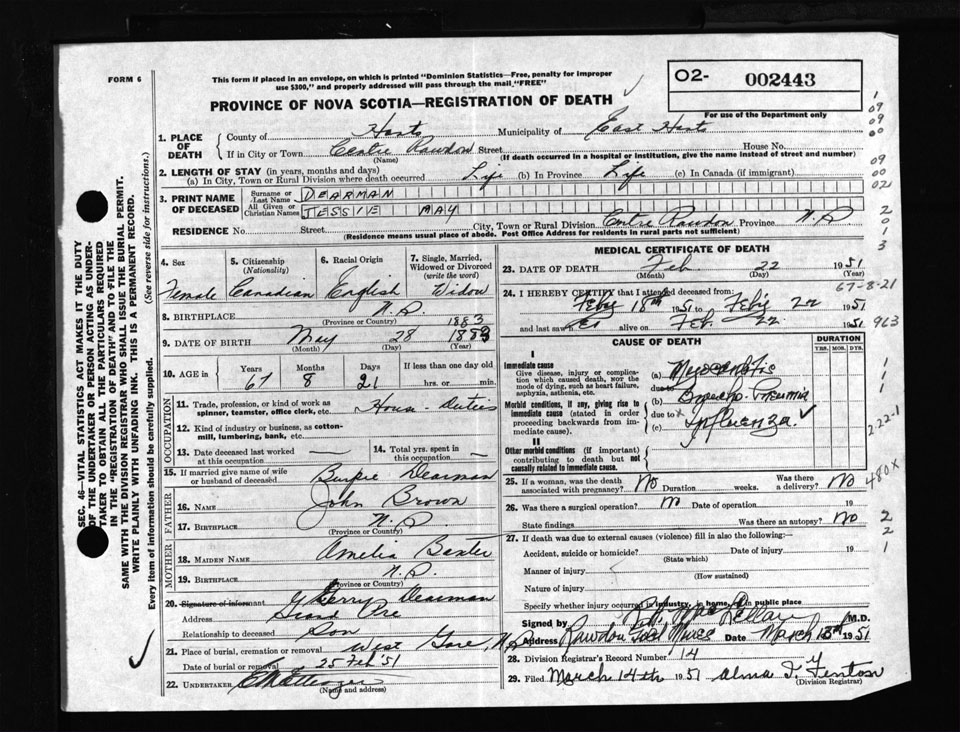 FORM 6
This form if placed in an envelope, on which is printed "Dominion Statistics—Free, penalty for improper
use $300," and properly addressed will pass through the mail, "FREE"
O2- 002443
For use of the Department only
PROVINCE OF NOVA SCOTIA—REGISTRATION OF DEATH
1. PLACE OF DEATH
County of Hants Municipality of East Hants
If in City or Town Centre Rawdon Street House No.
(Name) (If death occurred in a hospital or institution, give the name instead of street and number)
2. LENGTH OF STAY (in years, months and days)
(a) In City, Town or Rural Division where death occurred Life (b) In Province Life (c) In Canada (if immigrant)
3. PRINT NAME OF DECEASED
Surname or Last Name DEARMAN
All Given or Christian Names JESSIE MAY
RESIDENCE No. Street City, Town or Rural Division Centre Rawdon Province N.S.
(Residence means usual place of abode. Post Office Address for residents in rural parts not sufficient)
4. Sex Female
5. Citizenship (Nationality) Canadian
6. Racial Origin English
7. Single, Married, Widowed or Divorced (write the word) Widow
8. BIRTHPLACE N.S.
(Province or Country)
1883
9. DATE OF BIRTH May 28
(Month) (Day) (Year)
10. AGE in Years Months Days If less than one day
67 8 21 hrs. or min.
OCCUPATION
11. Trade, profession, or kind of work as spinner, teamster, office clerk, etc. House-Duties
12. Kind of industry or business, as cotton-mill, lumbering, bank, etc.
13. Date deceased last worked at this occupation —
14. Total yrs. spent in this occupation —
15. If married give name of wife or husband of deceased Burpie Dearman
FATHER
16. NAME John Brown
17. BIRTHPLACE N.S.
(Province or Country)
MOTHER
18. MAIDEN NAME Amelia Baxter
19. BIRTHPLACE N.S.
(Province or Country)
20. Signature of informant Dearman
Address Grand Pre
Relationship to deceased Son
21. Place of burial, cremation or removal West Gore, N.S.
Date of burial or removal 25 Feb '51
22. UNDERTAKER
(Name and address)
MEDICAL CERTIFICATE OF DEATH
23. DATE OF DEATH Feb 22 1951
(Month) (Day) (Year)
67-8-21
24. I HEREBY CERTIFY that I attended deceased from:
Feby 18th 1951 to Feby 22 1951
and last saw alive on Feb. 22 1951
963
CAUSE OF DEATH DURATION
YRS. MOS. DYS.
I
Immediate cause
Give disease, injury or complication which caused death, NOT the mode of dying, such as heart failure, asphyxia, asthenia, etc.
(a) Myocarditis
due to
Morbid conditions, if any, giving rise to immediate cause (stated in order proceeding backwards from immediate cause).
(b) Broncho-Pneumonia
due to
(c) Influenza ✓
222-1
II
Other morbid conditions (if important) contributing to death but not causally related to immediate cause.
480X
25. If a woman, was the death associated with pregnancy? No Duration weeks. Was there a delivery? No
26. Was there a surgical operation? No Date of operation 19
State findings Was there an autopsy? No
27. If death was due to external causes (violence) fill in also the following:—
Accident, suicide or homicide? Date of injury 19
(State which)
Manner of injury
(How sustained)
Nature of injury
Specify whether injury occurred in industry, in home, or in public place
Signed by MacLellan M.D.
Address Rawdon Gold Mines Date March 1951
28. Division Registrar's Record Number 14
29. Filed March 14th 1951 Alma Fenton
(Division Registrar)
SEC. 46—VITAL STATISTICS ACT MAKES IT THE DUTY
OF THE UNDERTAKER OR PERSON ACTING AS UNDERTAKER TO OBTAIN ALL THE PARTICULARS REQUIRED
IN THE "REGISTRATION OF DEATH" AND TO FILE THE
SAME WITH THE DIVISION REGISTRAR WHO SHALL ISSUE THE BURIAL PERMIT.
WRITE PLAINLY WITH UNFADING INK. THIS IS A PERMANENT RECORD.
Every item of information should be carefully supplied. (See reverse side for instructions.)
1
09
00
09
00
021
2
0
1
3
1
1
1
2
2
1